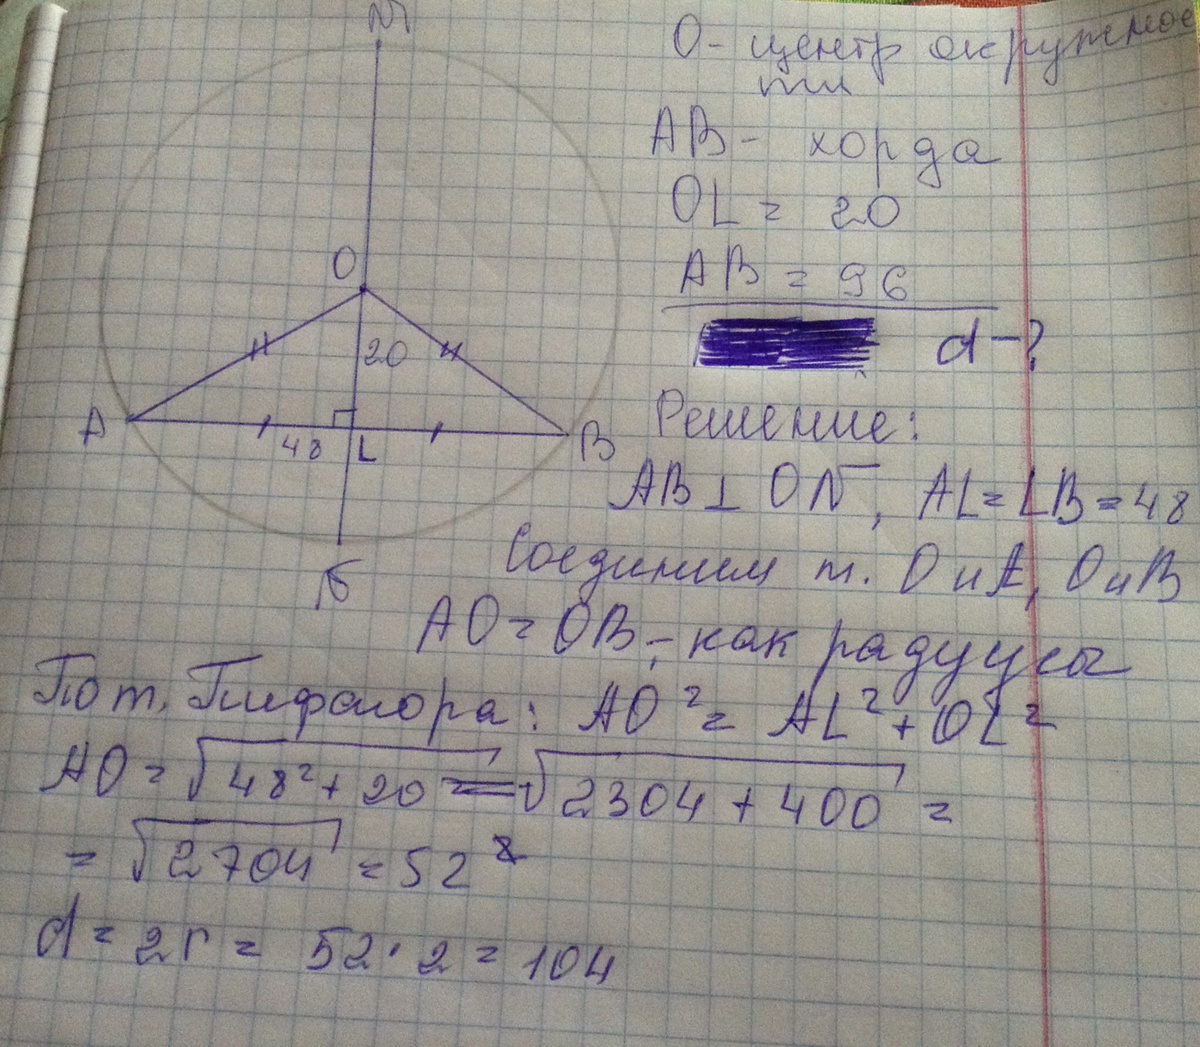 М
О
20
А
48
L
В
N
О - центр окружнос
ти
АВ - хорда
OL = 20
АВ = 96
d - ?
Решение:
АВ ⊥ ON, AL = LB = 48
Соединим т. О и А, О и В
АО = ОВ - как радиусы
По т. Пифагора: АО² = AL² + OL²
АО = √48² + 20 = √2304 + 400 =
= √2704 = 52
d = 2r = 52 · 2 = 104